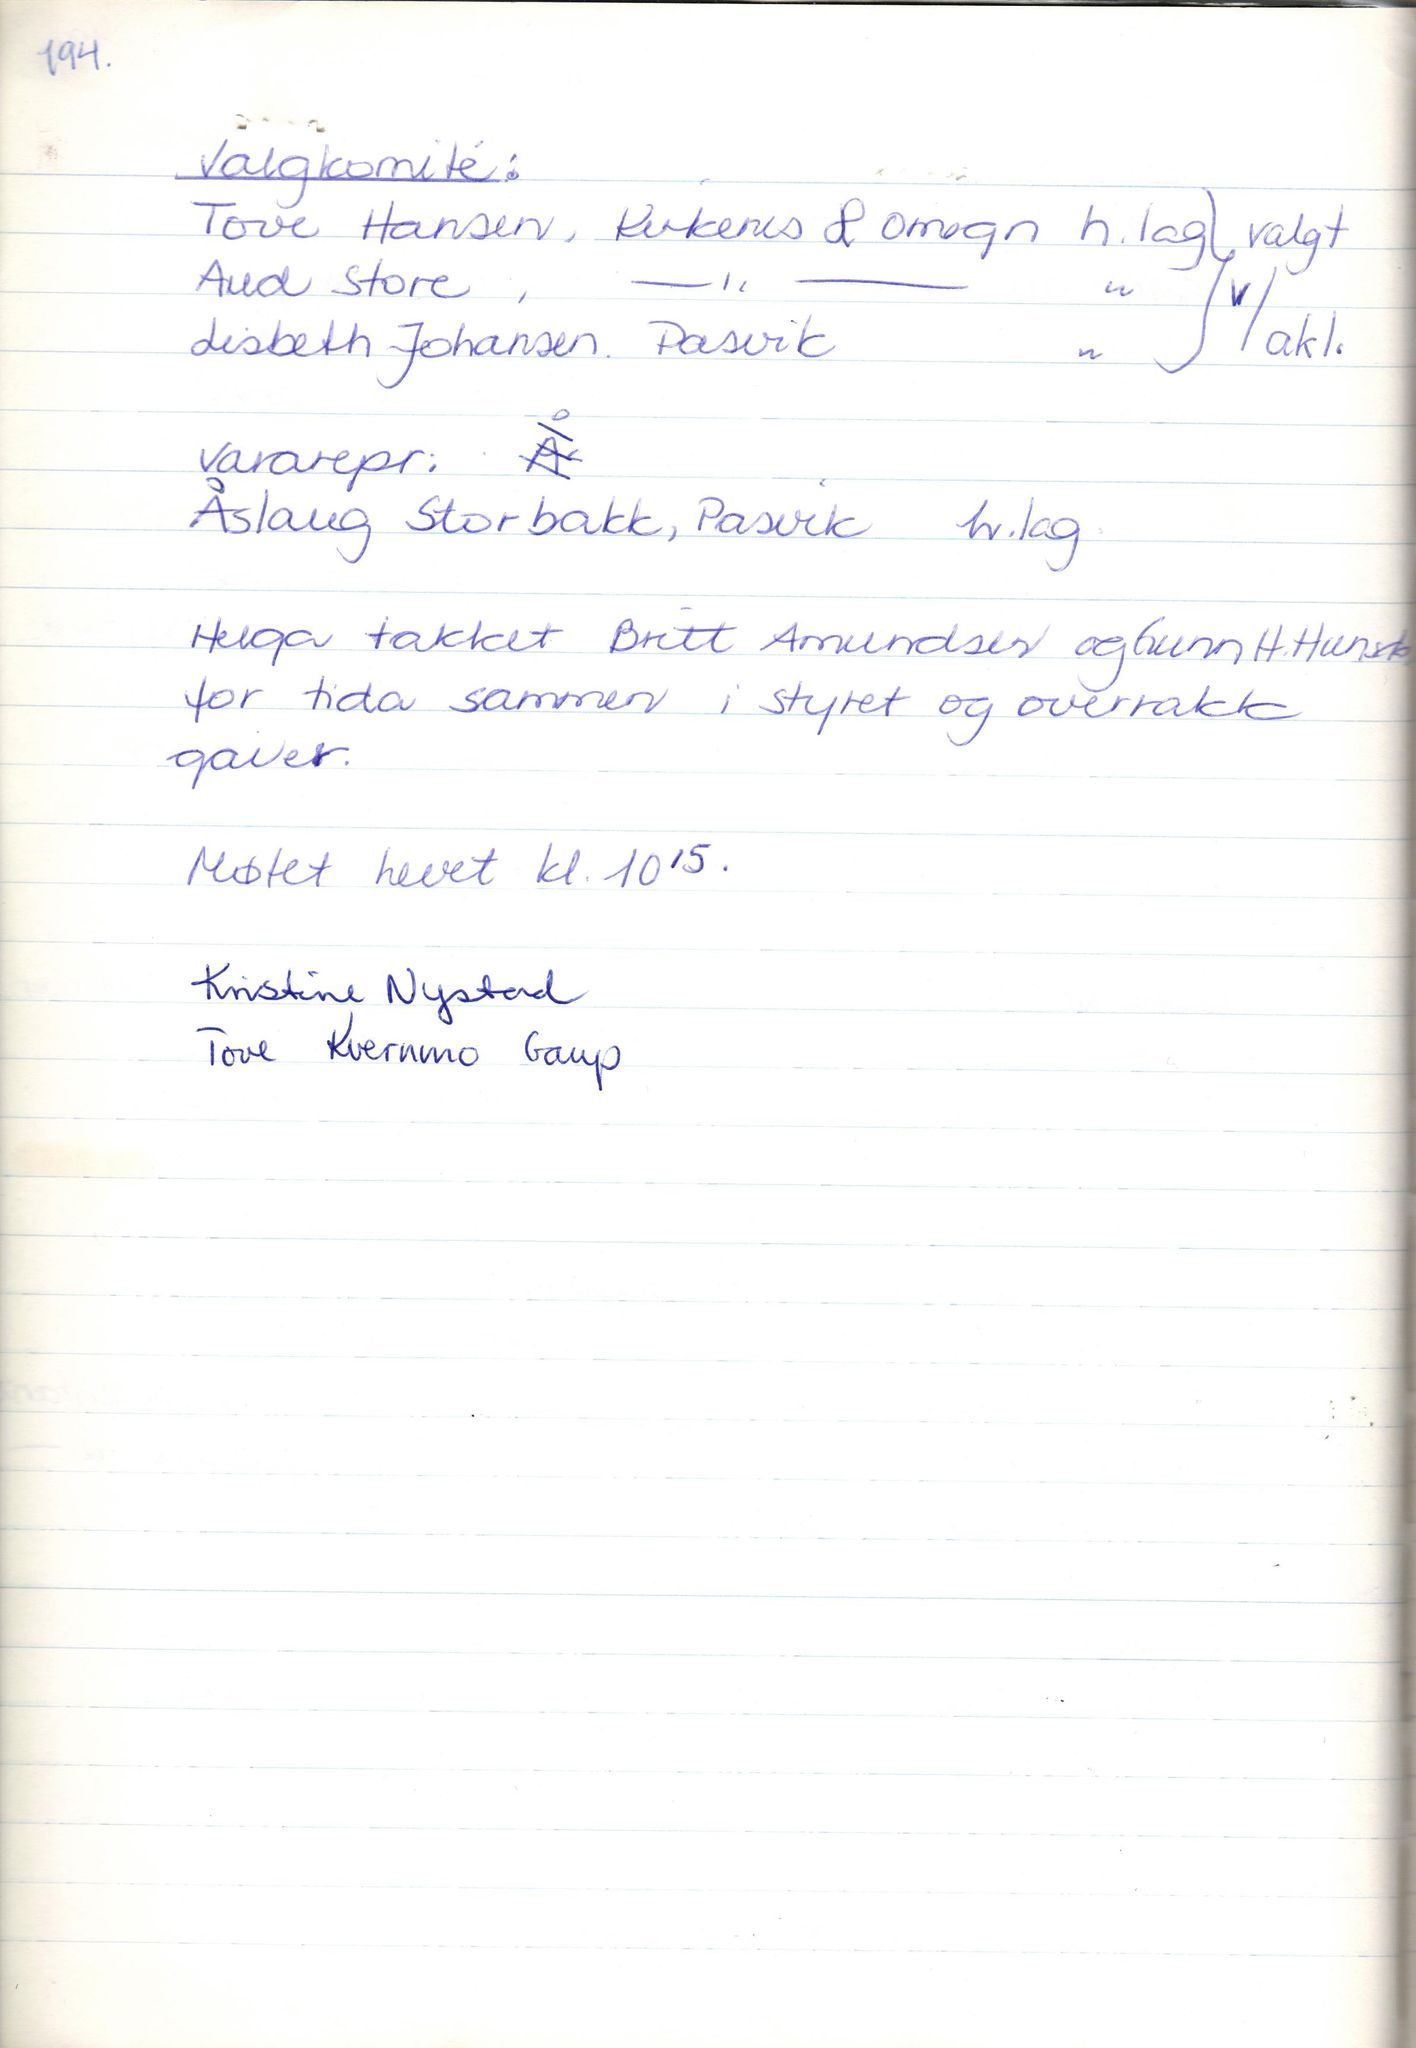 194.
Valgkomité:
Tove Hansen, Kirkenes & omegn h.lag } valgt
Aud Store , —〃— 〃 v/
Lisbeth Johansen. Pasvik 〃 akl.
vararepr: Å
Åslaug Storbakk, Pasvik h.lag
Helga takket Britt Amundsen og Gunn H.
for tida sammen i styret og overrakk
gaver.
Møtet hevet kl. 10 15.
Kristine Nystad
Tove Kvernmo Gaup